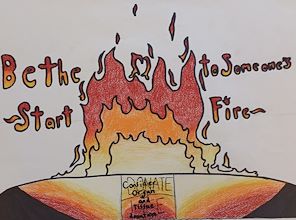 Be the to Someone's
~Start Fire~
DONATE
Consider
Organ
and
Tissue
donation